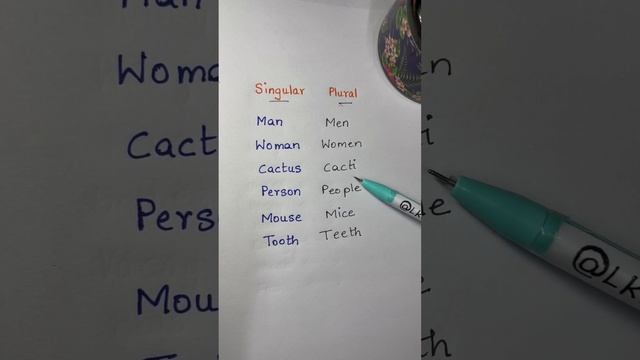 Singular Plural
Man Men
Woman Women
Cactus Cacti
Person People
Mouse Mice
Tooth Teeth
@LK